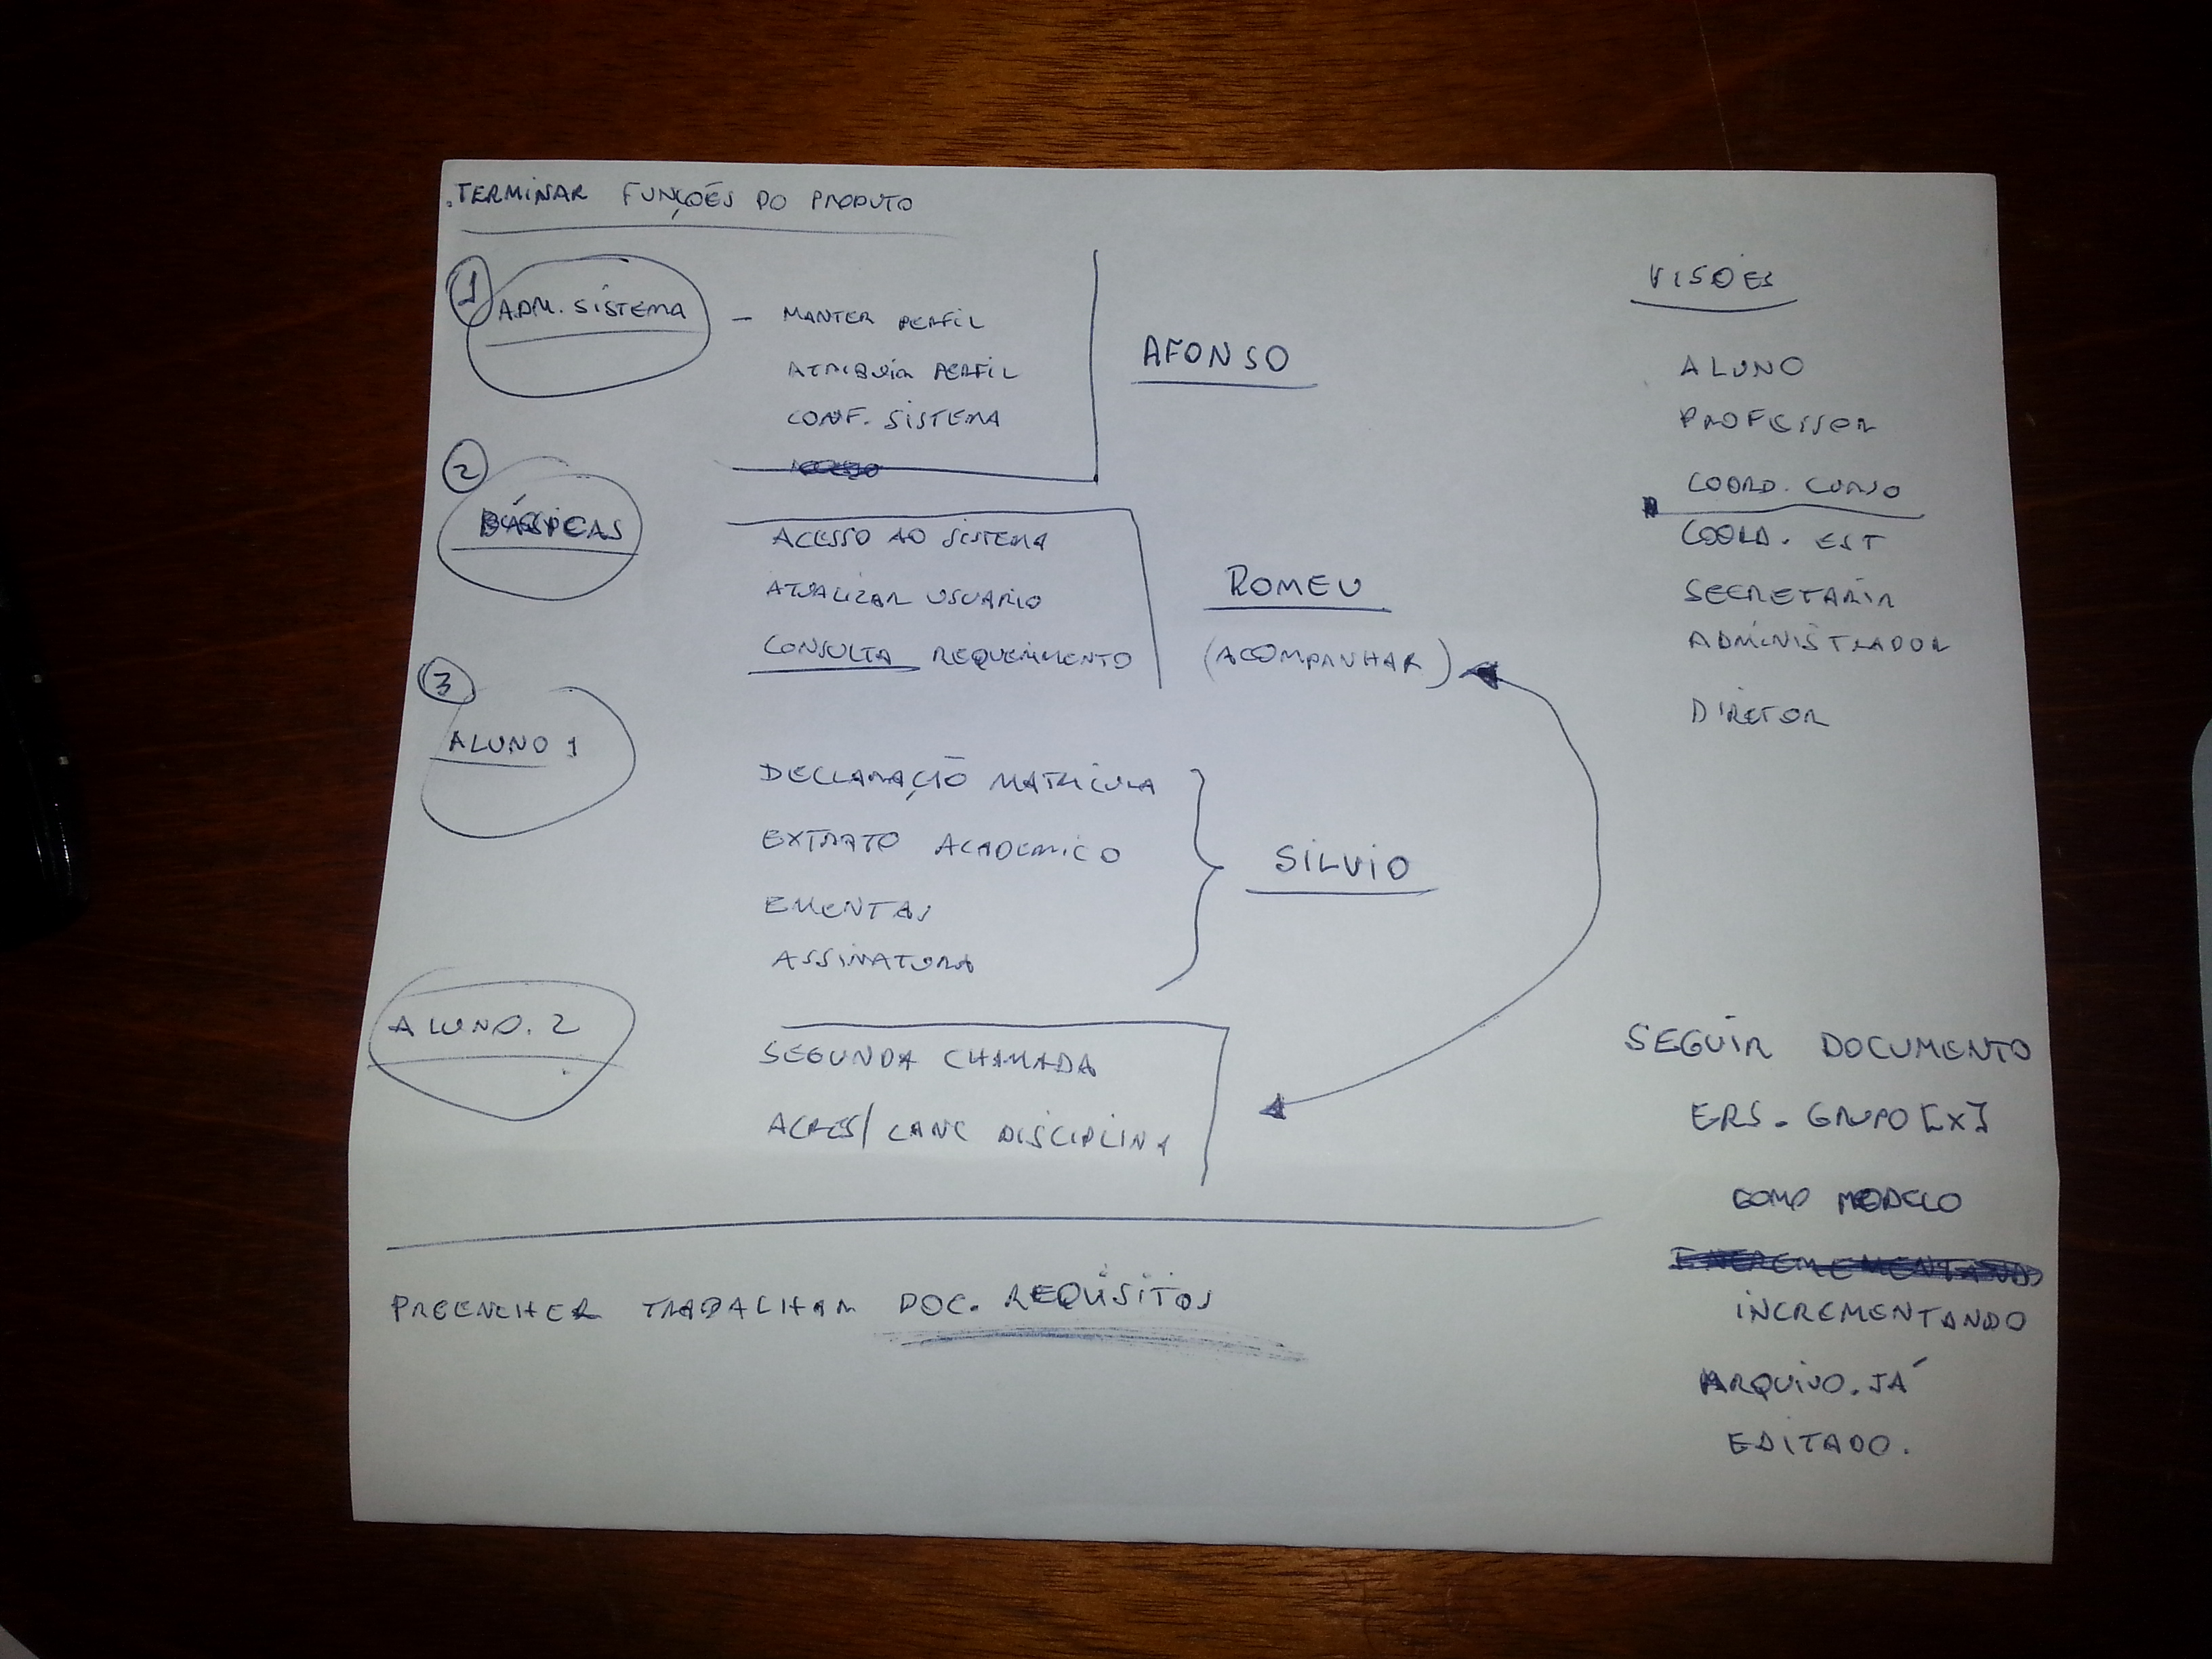 .TERMINAR FUNÇÕES DO PRODUTO
1 ADM. SISTEMA - MANTER PERFIL
ATRIBUIR PERFIL
CONF. SISTEMA
AFONSO
2 BÁSICAS
ACESSO AO SISTEMA
ATUALIZAR USUARIO
CONSULTA REQUERIMENTO
ROMEU
(ACOMPANHAR)
3
ALUNO 1
DECLARAÇÃO MATRICULA
EXTRATO ACADEMICO
EMENTAS
ASSINATURA
SILVIO
ALUNO. 2
SEGUNDA CHAMADA
ACRES/ CANC DISCIPLINA
PREENCHER TRABALHAR DOC. REQUISITOS
VISÕES
ALUNO
PROFESSOR
COORD. CURSO
COORD. EST
SECRETARIA
ADMINISTRADOR
DIRETOR
SEGUIR DOCUMENTO
ERS. GRUPO [X]
COMO MODELO
INCREMENTANDO
ARQUIVO. JÁ
EDITADO.